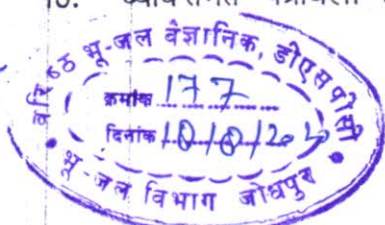 10.
वरिष्ठ भू-जल वैज्ञानिक, डीएसपीसी
क्रमांक 177
दिनांक
भू-जल विभाग जोधपुर